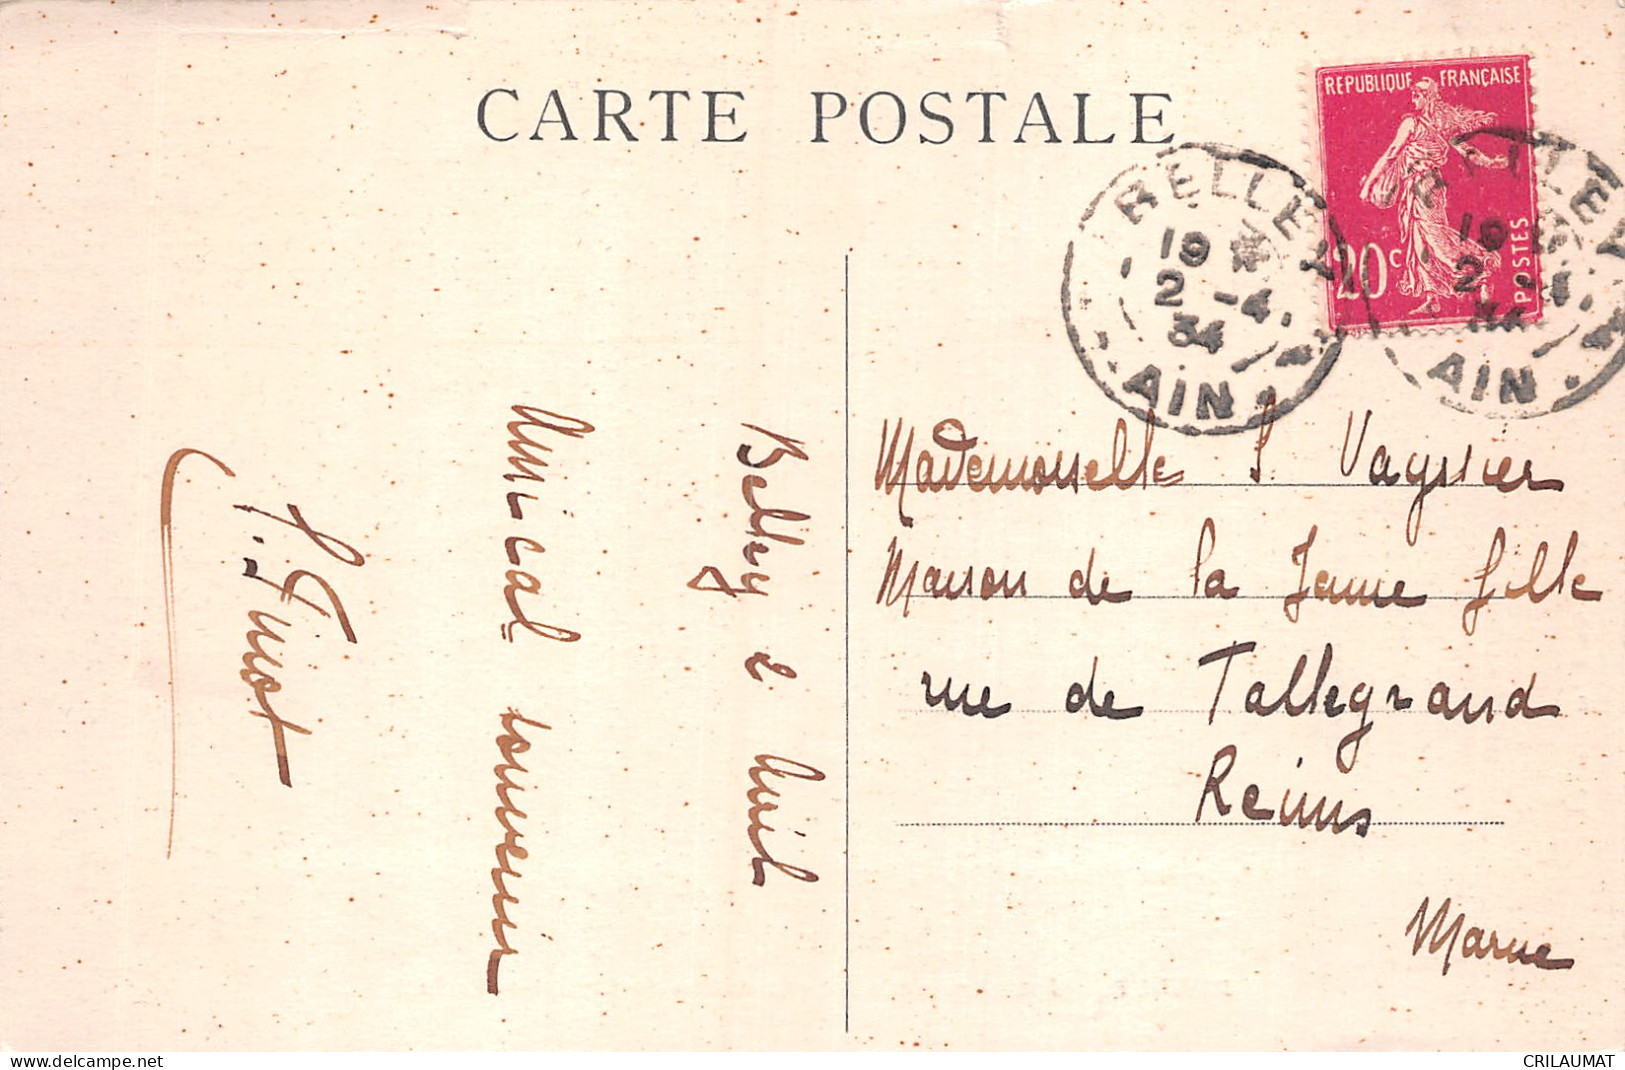 CARTE POSTALE
REPUBLIQUE FRANÇAISE
20c
POSTES
BELLEY
19
2 -4.
34
AIN
BELLEY
19
2 -4.
34
AIN
Belley 2 Avril
Amical souvenir
Mademoiselle S. Vayssier
Maison de la Jeune fille
rue de Talleyrand
Reims
Marne
www.delcampe.net
cartes-postales
CRILAUMAT